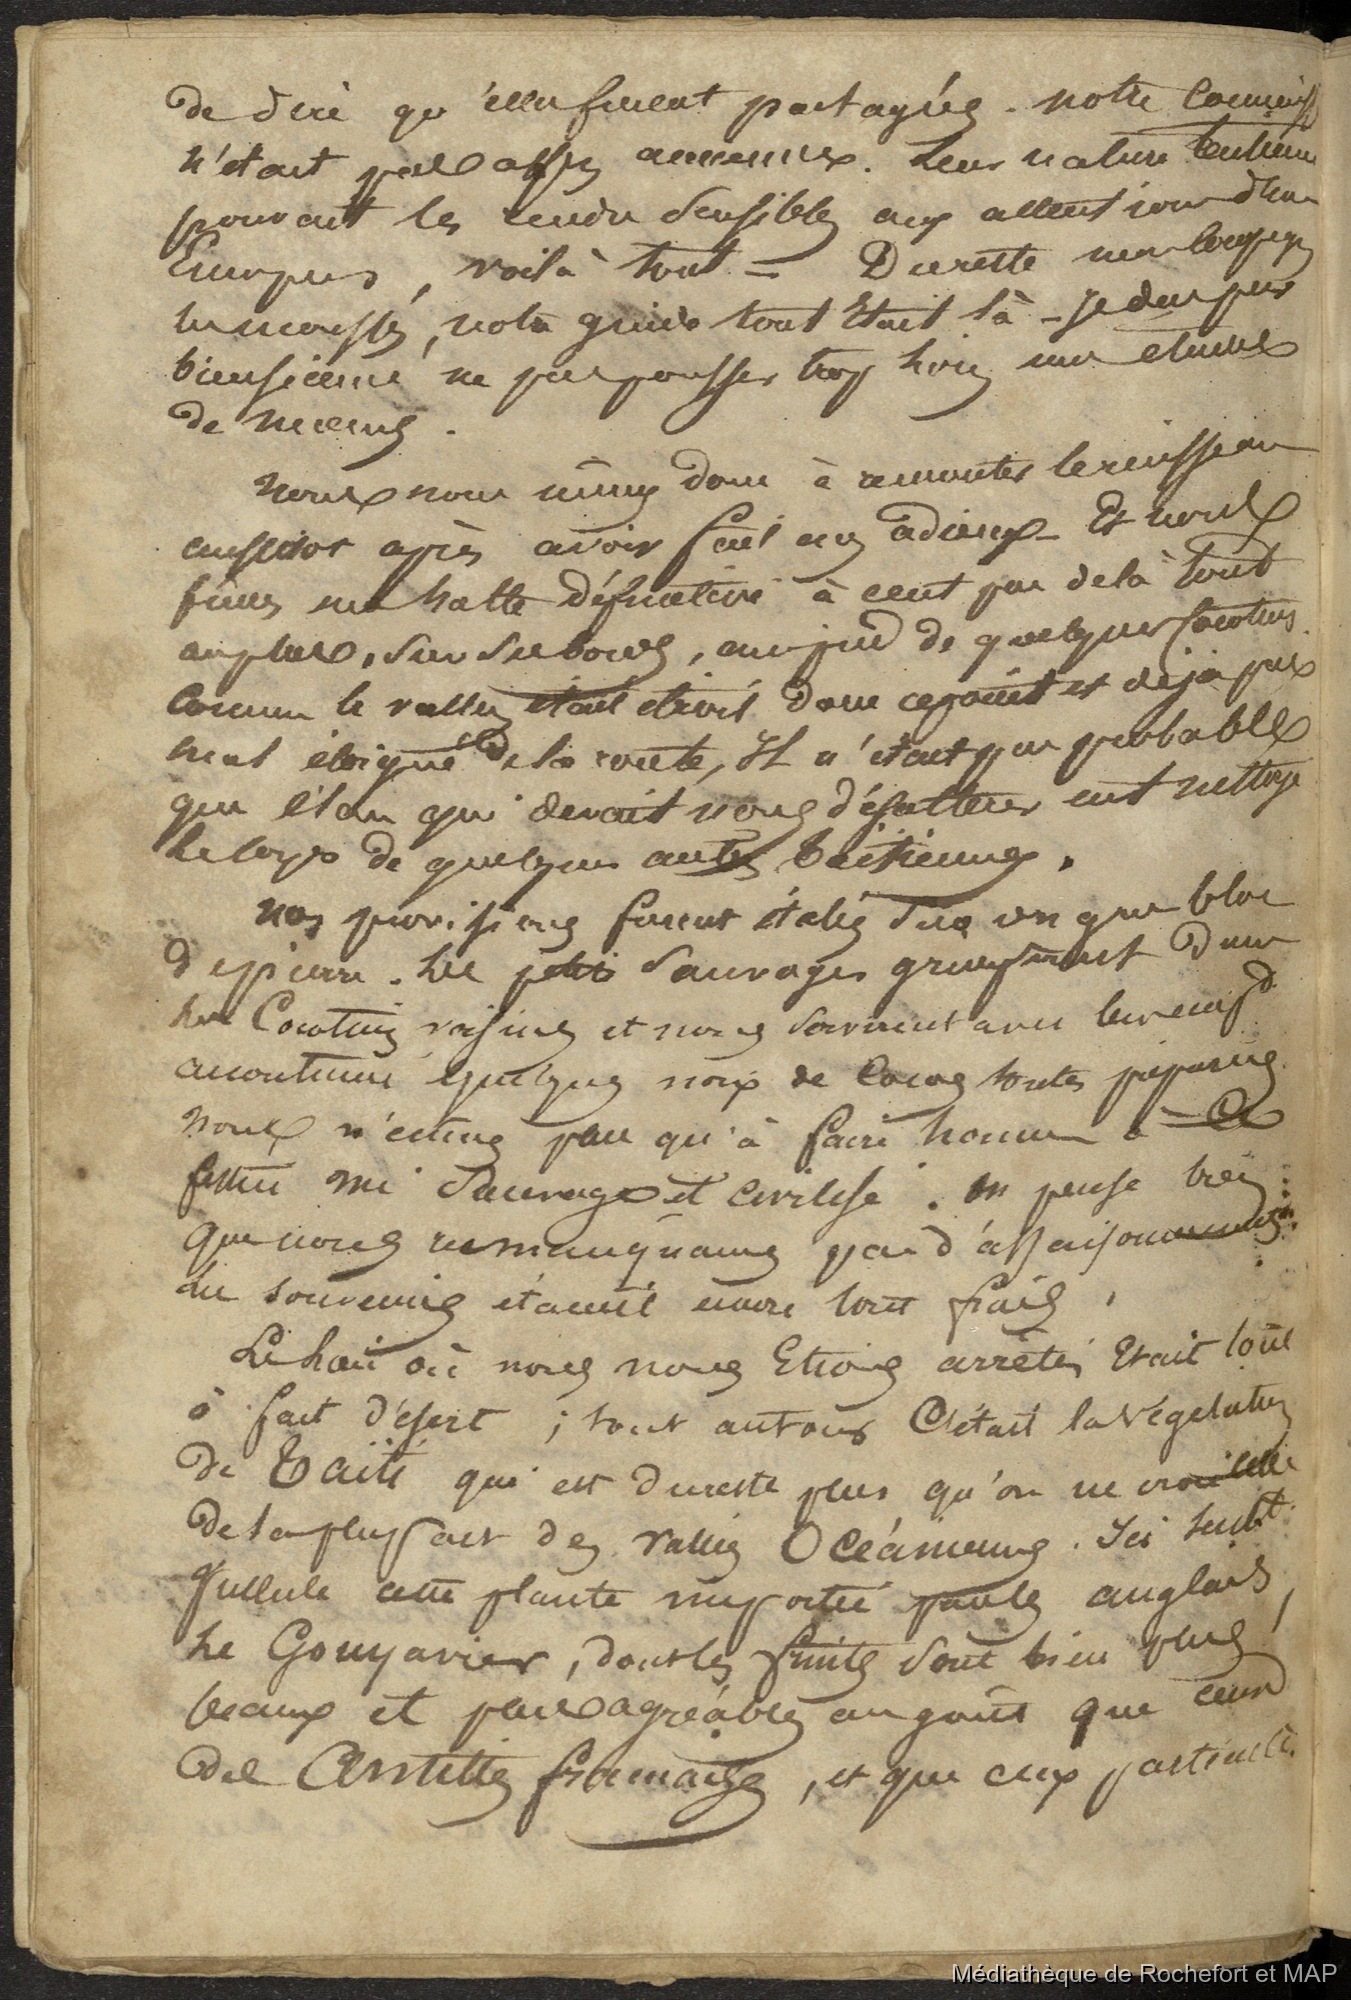 de dire qu'elles fussent partagées. notre connaiss
n'était pas assez ancienne. Leur nature
pouvait les rendre sensibles aux attentions d'un
Européen, voilà tout = Dureste mon
les mousses, notre guide tout était là - je dus par
bienséance ne pas pousser trop loin mon étude
de moeurs.
Nous nous mimes donc à remonter le ruisseau
aussitot après avoir fait nos adieux - Et nous
fimes une halte définitive à cent pas de là tout
au plus, sur ses bords, au pied de quelques cocotiers.
Comme la vallée était étroite dans ce point et déjà pas
mal éloigné de la route, Il n'était pas probable
que l'eau qui devait nous désaltérer eut nettoyé
le corps de quelques autres taïtiennes.
nos provisions furent étalées sur un gros bloc
de pierre. Les petits sauvages grimpèrent dans
les Cocotiers voisins et nous servirent avec leur
accoutumé quelques noix de Cocos toutes préparées
nous n'eumes plus qu'à faire honneur à Ce
festin mi sauvage et civilisé. on pense bien
que nous ne manquames pas d'assaisonnements
les souvenirs étaient encore tout frais.
Le lieu où nous nous Etions arrêtés Etait tout
à fait désert ; tout autour C'était la végétation
de Taïti qui est dureste plus qu'on ne croit celle
de la plupart des vallées Océaniennes. Ici surtt
pullule cette plante importée par les anglais,
Le Gouyavier, dont les fruits sont bien plus
beaux et plus agréables au goût que ceux
des Antilles françaises, et que ceux particulièr.
Médiathèque de Rochefort et MAP